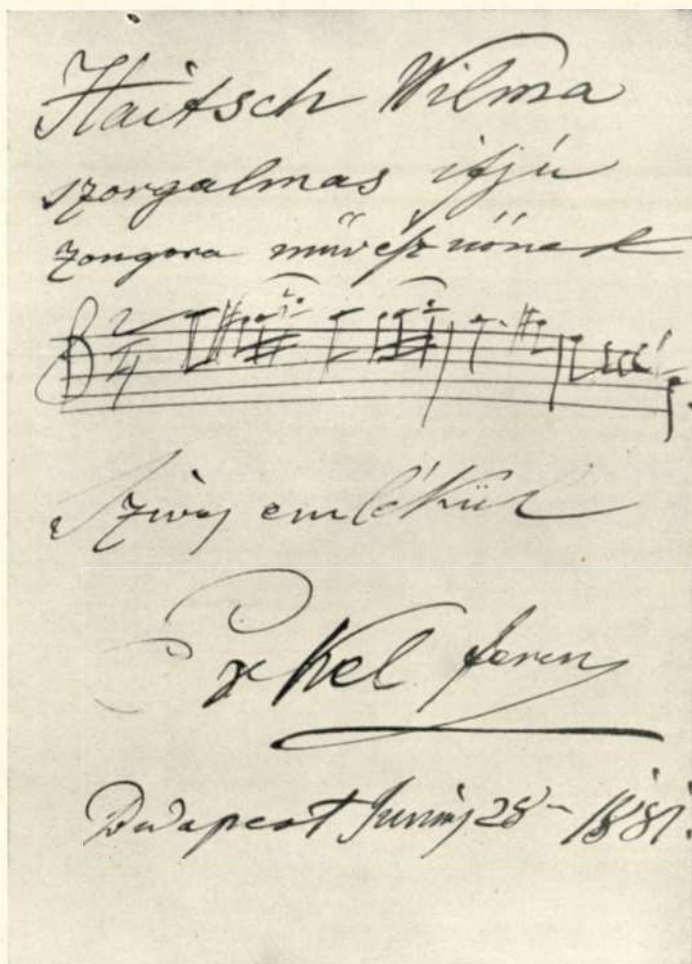 Haitsch Wilma
szorgalmas ifjú
zongora művésznőnek
2
4
Szives emlékül
Erkel Ferenc
Budapest Junius 28 1881.